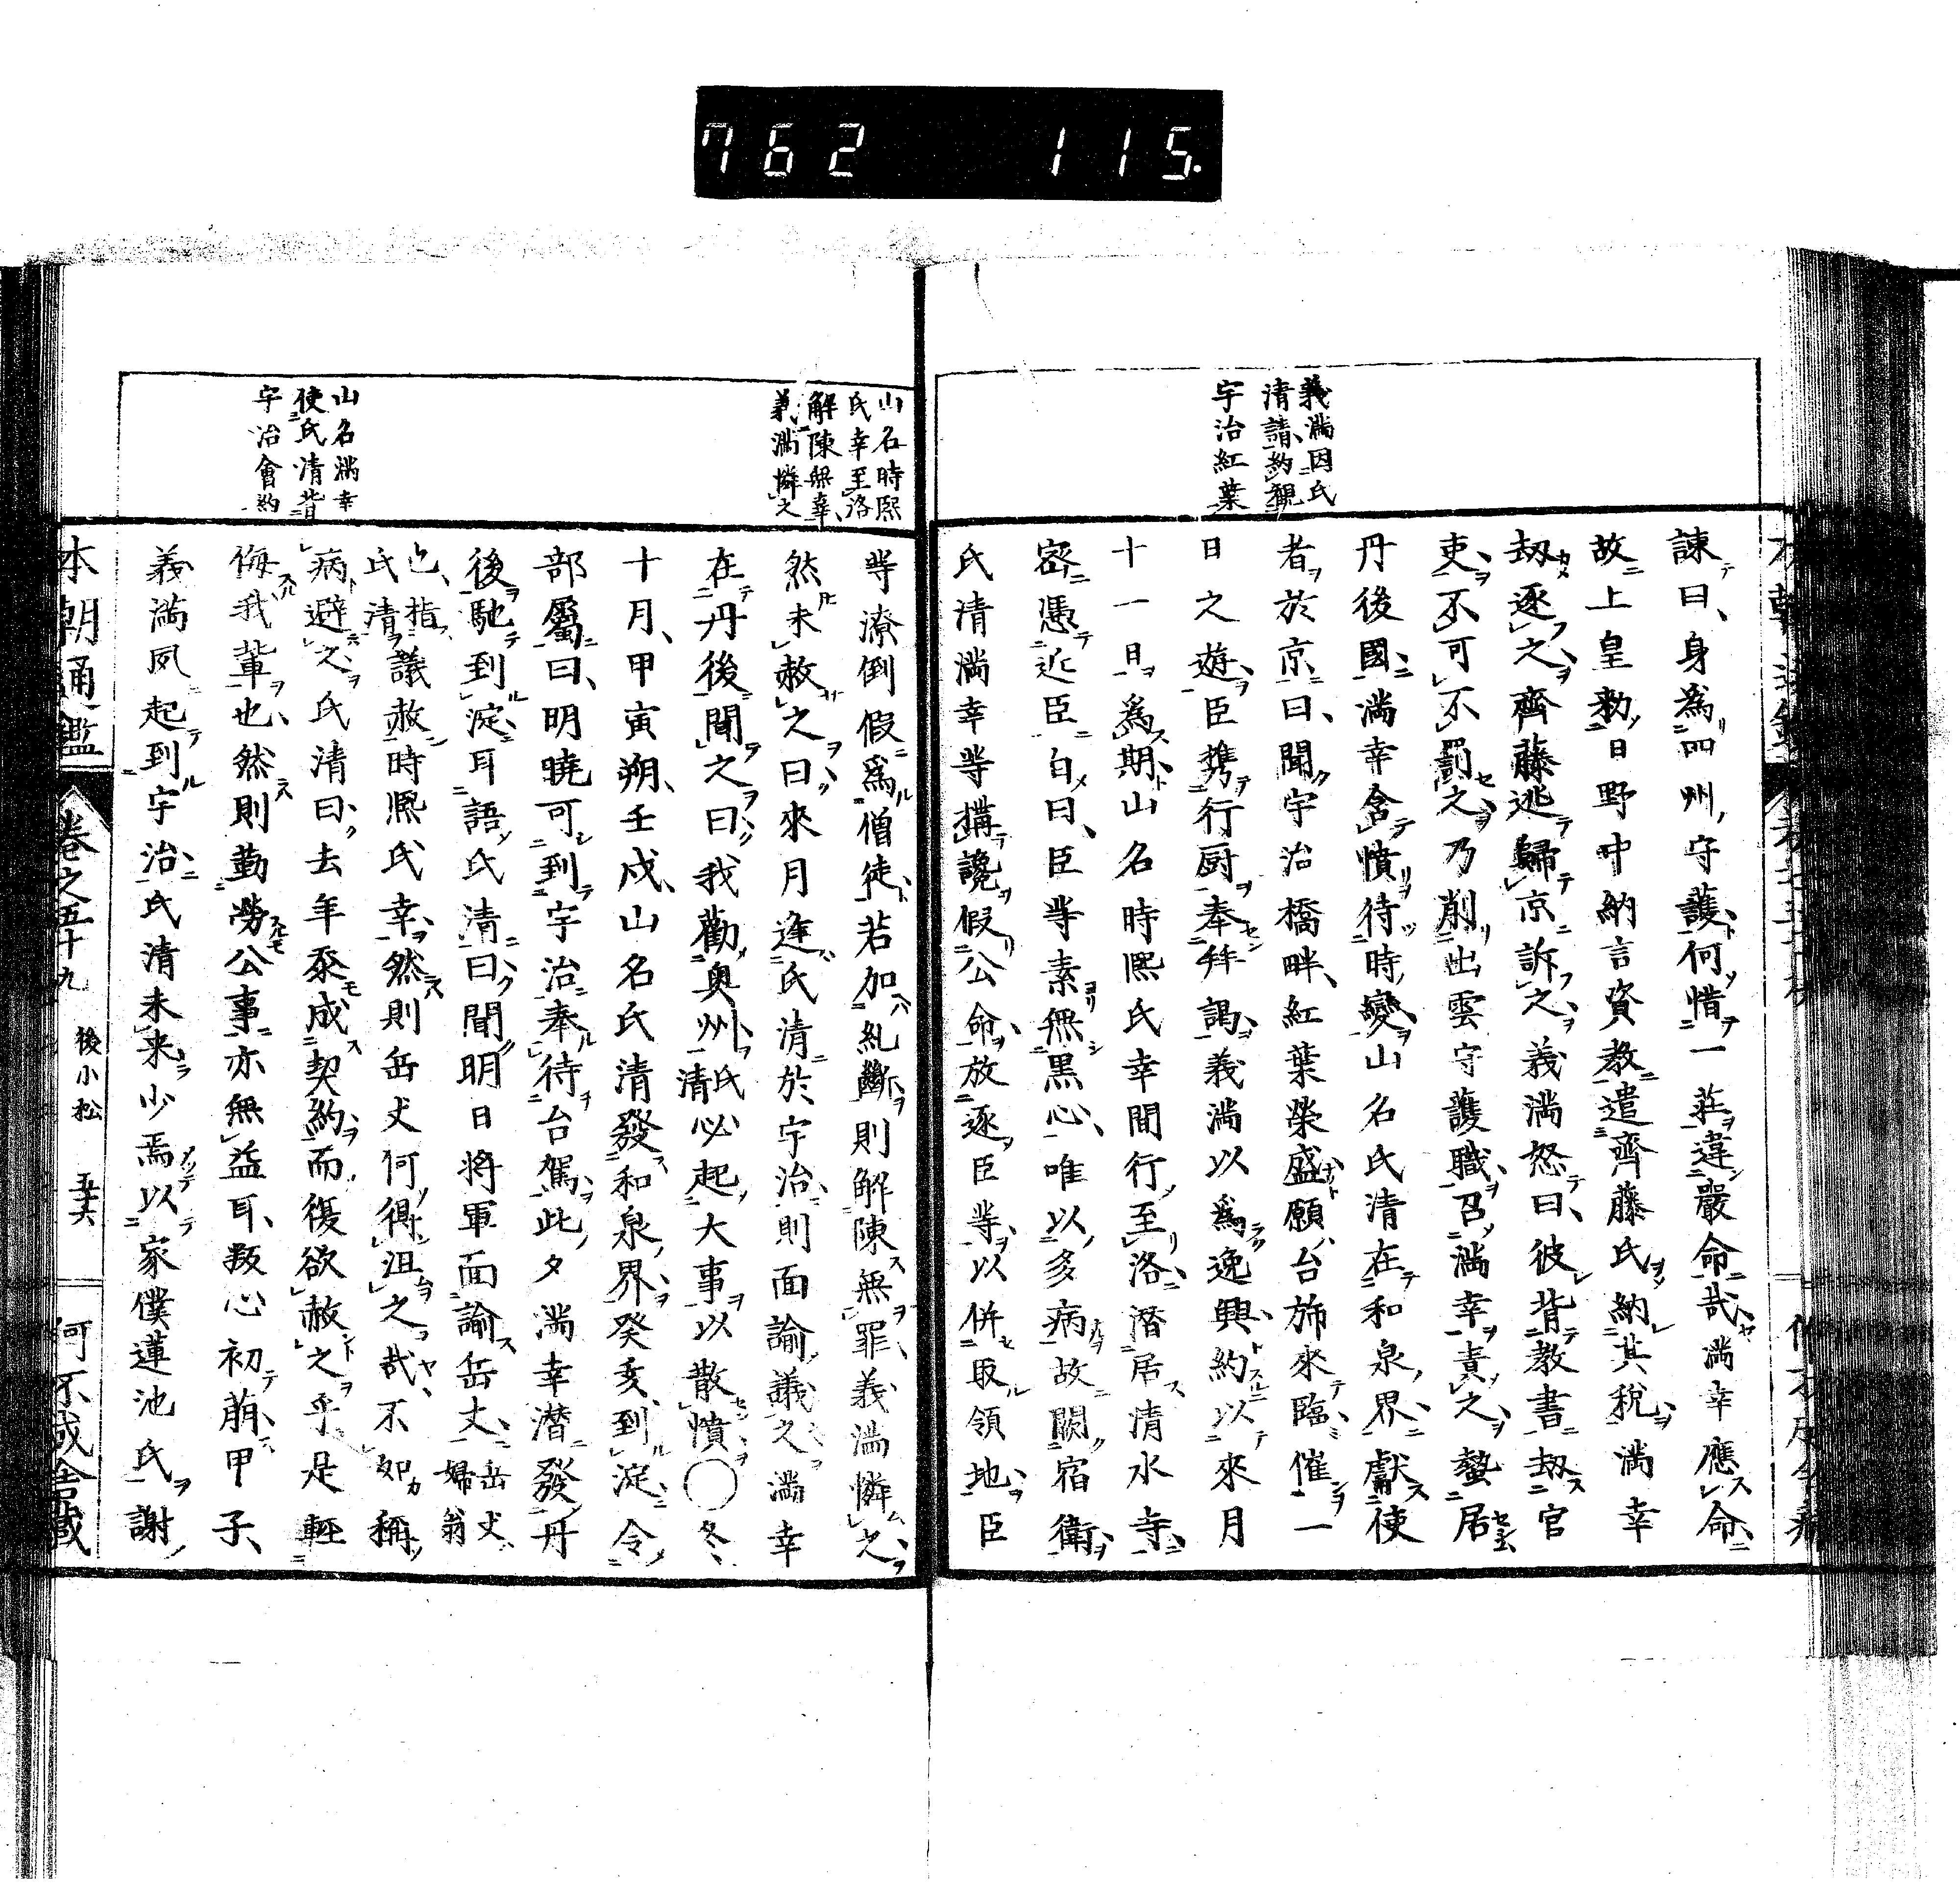 762 115.
義滿因氏
清請約觀
宇治紅葉
諫曰身為四州守護何惜一莊違嚴命哉滿幸應命
故上皇勅日野中納言資教遣齊藤氏納其稅滿幸
劫逐之齊藤逃歸京訴之義滿怒曰彼背教書劫官
吏不可不罰之乃削出雲守護職召滿幸責之蟄居
丹後國滿幸含憤待時變山名氏清在和泉界獻使
者於京曰聞宇治橋畔紅葉榮盛願台旆來臨催一
日之遊臣携行厨奉拜謁義滿以為逸興約以來月
十一日為期山名時熙氏幸間行至洛潛居清水寺
密憑近臣白曰臣等素無黑心唯以多病故闕宿衛
氏清滿幸等搆讒假公命放逐臣等以併取領地臣
山名時熙
氏幸至洛
解陳無辜
義滿憐之
山名滿幸
使氏清背
宇治會約
等潦倒假為僧徒若加糺斷則解陳無罪義滿憐之
然未赦之曰來月逢氏清於宇治則面諭議之滿幸
在丹後聞之曰我勸奥州氏清必起大事以散憤○冬
十月甲寅朔壬戌山名氏清發和泉界癸亥到淀令
部屬曰明曉可到宇治奉待台駕此夕滿幸潛發丹
後馳到淀耳語氏清曰聞明日將軍面諭岳丈岳丈婦翁
也指氏清議赦時熙氏幸然則岳丈何得沮之哉不如稱
病避之氏清曰去年忝成契約而復欲赦之乎是輕
侮我輩也然則勤勞公事亦無益耳叛心初萠甲子
義滿夙起到宇治氏清未来少焉以家僕蓮池氏謝
本朝通鑑 卷之五十九 後小松 五十六 何不成舍藏